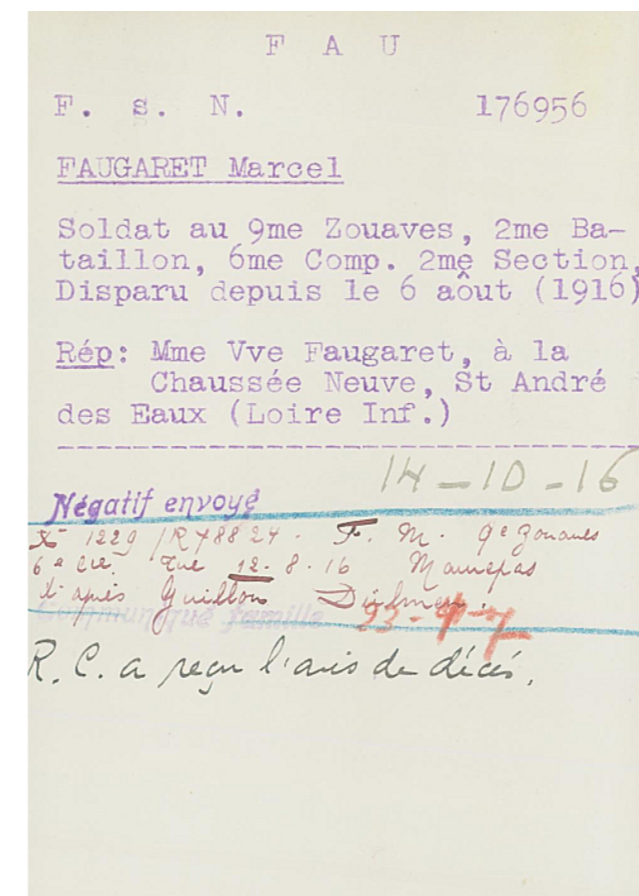 F A U
F. s. N. 176956
FAUGARET Marcel
Soldat au 9me Zouaves, 2me Ba-
taillon, 6me Comp. 2me Section,
Disparu depuis le 6 aôut (1916)
Rép: Mme Vve Faugaret, à la
Chaussée Neuve, St André
des Eaux (Loire Inf.)
14-10-16
Négatif envoyé
1229 / R 48824. F. M. 9e Zouaves
6e Cie. Tué 12.8.16 Maurepas
d'après Guillon Dülmen.
Communiqué famille 23-
R. C. a reçu l'avis de décés.